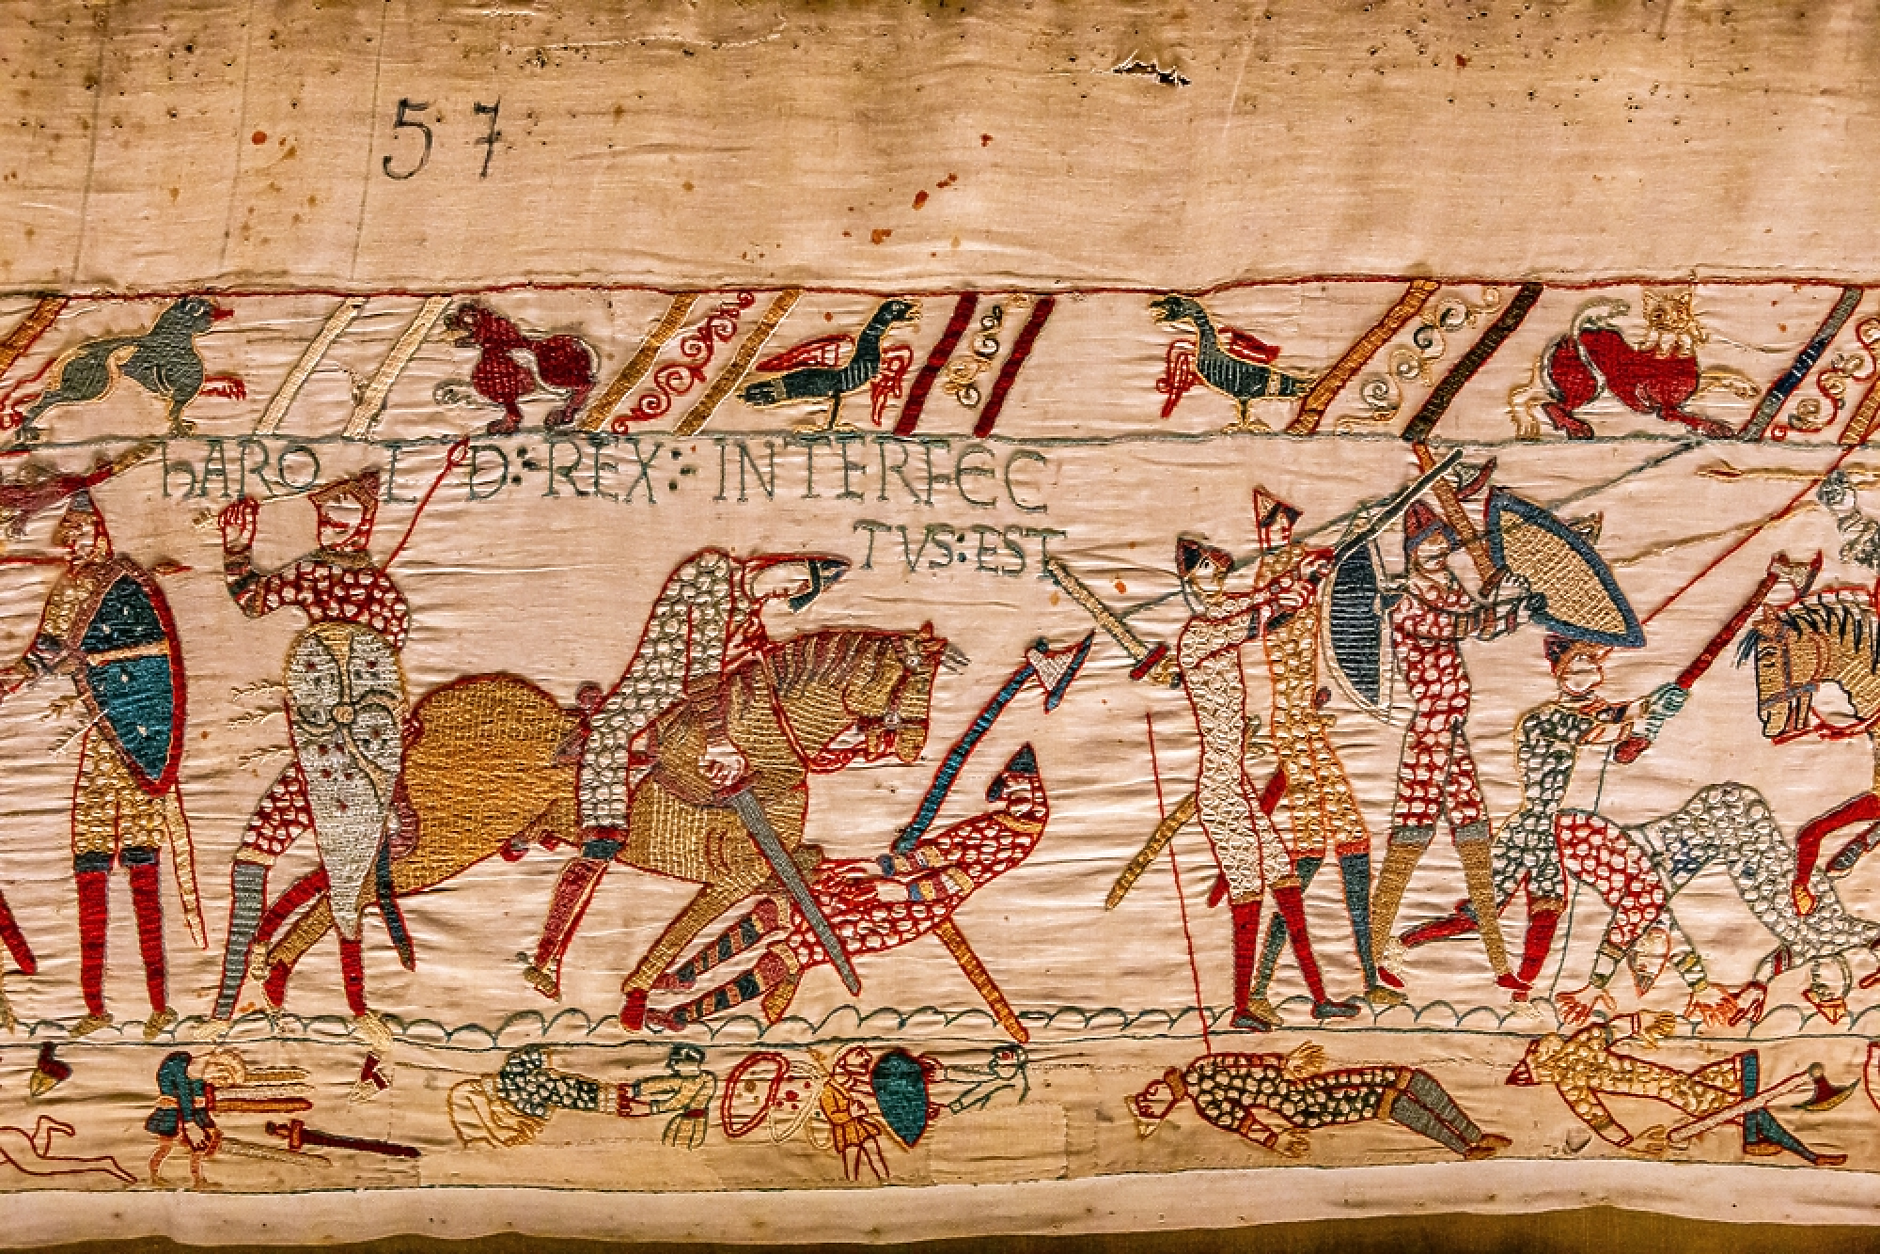 57
hAROLD:REX:INTERFEC
TVS:EST